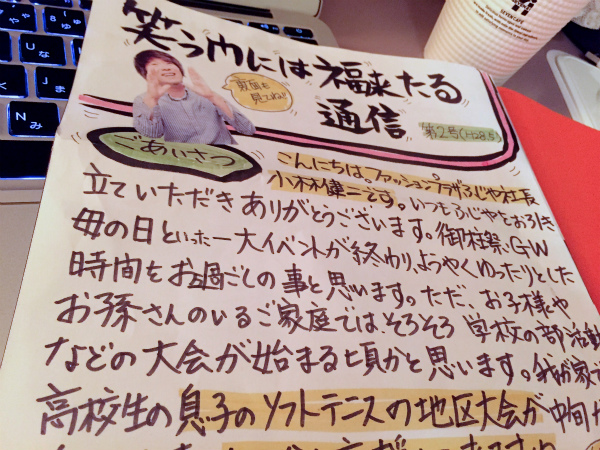 笑う門には福来たる
通信
裏面も
見てね!!
第2号(H28.5)
ごあいさつ
こんにちは、ファッションプラザふじや社長
小林健二です。いつもふじやをお引き
立ていただきありがとうございます。御柱祭、GW
母の日といった一大イベントが終わり、ようやくゆったりとした
時間をお過ごしの事と思います。ただ、お子様や
お孫さんのいるご家庭ではそろそろ学校の部活動
などの大会が始まる頃かと思います。我が家で
高校生の息子のソフトテニスの地区大会が中旬